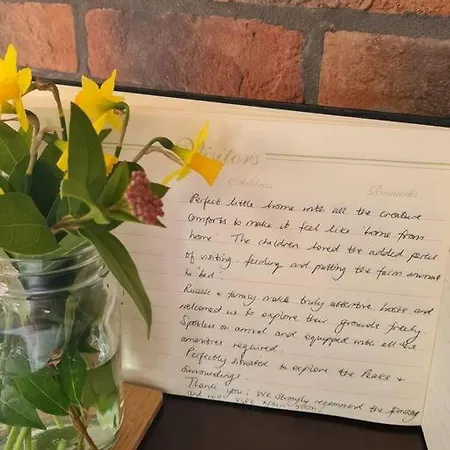 Visitors
Address Remarks
Perfect little home with all the creature
comforts to make it feel like 'home from
home'. The children loved the added perks
of visiting, feeding and putting the farm animals
to 'bed'.
& family make truly attentive hosts and
welcomed us to explore their grounds freely.
Spotless on arrival and equipped with all the
amenities required.
Perfectly situated to explore the Peaks &
surroundings.
Thank you! We strongly recommend the
and will